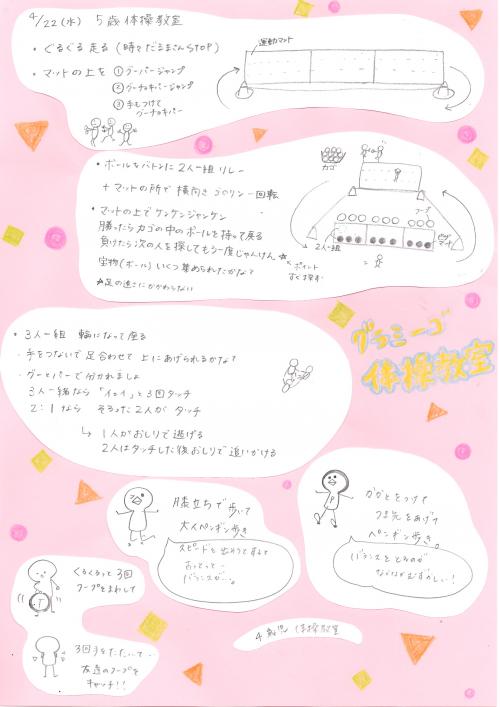 4/22(水) 5歳体操教室
・ぐるぐる走る(時々だるまさんSTOP)
・マットの上を ①グーパージャンプ
②グーチョキパージャンプ
③手もつけて
グーチョキパー
運動マット
・ボールをバトンに2人一組リレー
+マットの所で横向きゴロリン一回転
・マットの上でケンケンジャンケン
勝ったらカゴの中のボールを持って戻る
負けたら次の人を探してもう一度じゃんけん
宝物(ボール)いくつ集められたかな?
☆足の速さにかかわらない
カゴ
フープ
2人一組
マット
ポイント
すぐ探す
グラミーゴ
体操教室
・3人一組 輪になって座る
・手をつないで足合わせて上にあげられるかな?
・グーとパーで分かれましょ
3人一緒なら「イェイ」と3回タッチ
2:1なら そろった2人がタッチ
↳ 1人がおしりで逃げる
2人はタッチした後おしりで追いかける
膝立ちで歩いて
大人ペンギン歩き
スピードを出そうとすると
おっとっと…
バランスが…。
かかとをつけて
つま先をあげて
ペンギン歩き。
バランスをとるのが
なかなかむずかしい!
くるくるって3回
フープをまわして
3回手をたたいて…
友達のフープを
キャッチ!!
4歳児 体操教室